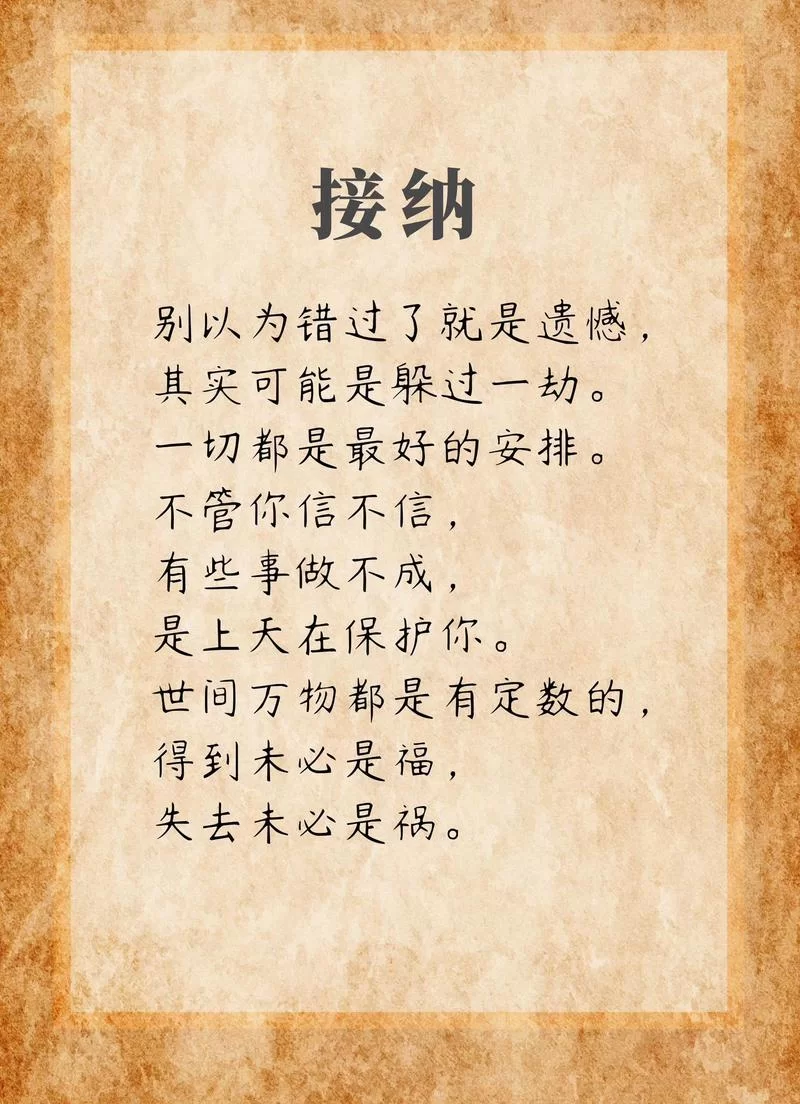 接纳
别以为错过了就是遗憾，
其实可能是躲过一劫。
一切都是最好的安排。
不管你信不信，
有些事做不成，
是上天在保护你。
世间万物都是有定数的，
得到未必是福，
失去未必是祸。